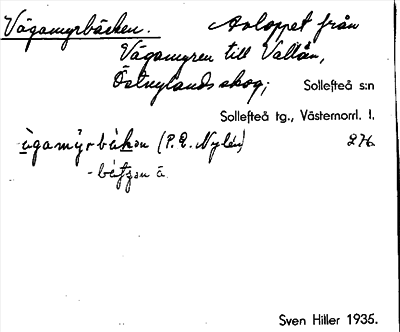 Vågamyrbäcken. Avloppet från
Vågamyren till Vallån,
Östnylands skog; Sollefteå s:n
Sollefteå tg., Västernorrl. l.
(P. E. Nylén) 276
Sven Hiller 1935.